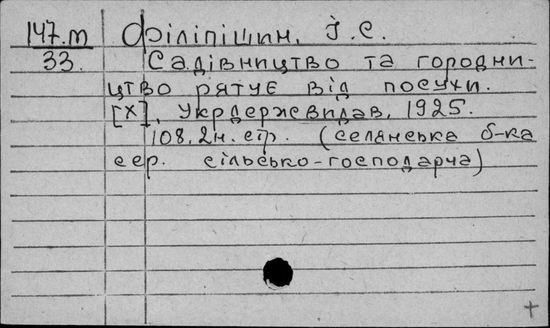 147.m Філіпішин, І.С.
33. Садівництво та городни-
цтво рятує від посухи.
[Х], Укрдержвидав, 1925.
108, 2н. стр. (селянська б-ка
сер. сільсько-господарча)
+